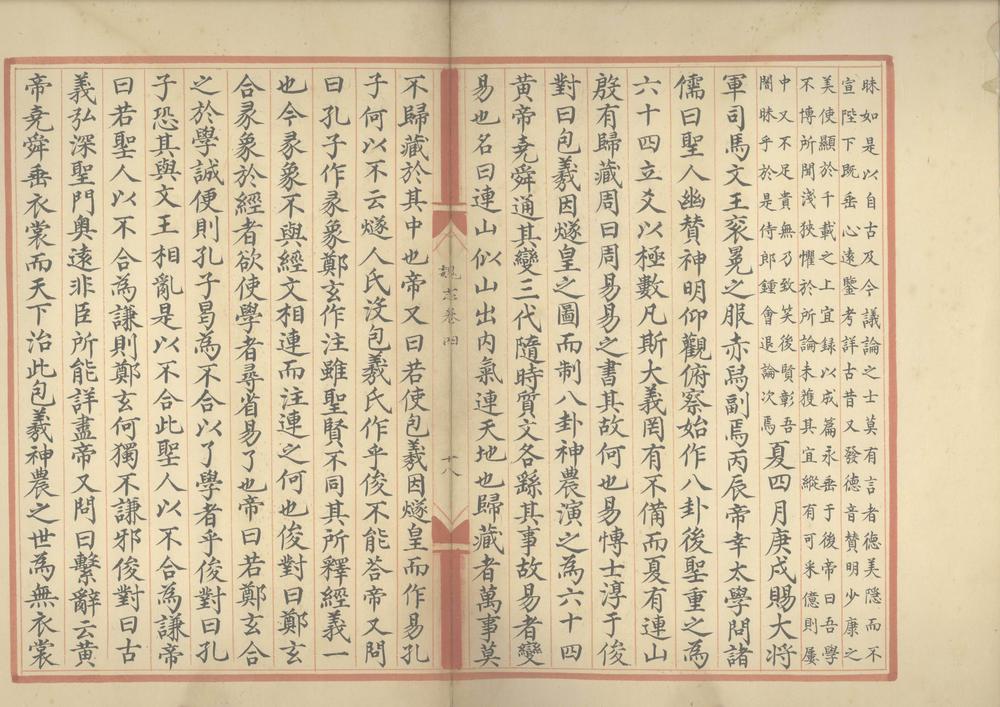 昧如是以自古及今議論之士莫有言者德美隱而不
宣陛下既垂心遠鑒考詳古昔又發德音贊明少康之
美使顯於千載之上宜錄以成篇永垂于後帝曰吾學
不博所聞淺狹懼於所論未獲其宜縱有可采億則屢
中又不足貴無乃致笑後賢彰吾
闇昧乎於是侍郎鍾會退論次焉
夏四月庚戌賜大將
軍司馬文王衮冕之服赤舄副焉丙辰帝幸太學問諸
儒曰聖人幽贊神明仰觀俯察始作八卦後聖重之為
六十四立爻以極數凡斯大義罔有不備而夏有連山
殷有歸藏周曰周易易之書其故何也易愽士淳于俊
對曰包羲因燧皇之圖而制八卦神農演之為六十四
黃帝堯舜通其變三代隨時質文各繇其事故易者變
易也名曰連山似山出內氣連天地也歸藏者萬事莫
魏志卷四
十八
不歸藏於其中也帝又曰若使包羲因燧皇而作易孔
子何以不云燧人氏沒包羲氏作乎俊不能荅帝又問
曰孔子作彖象鄭玄作注雖聖賢不同其所釋經義一
也今彖象不與經文相連而注連之何也俊對曰鄭玄
合彖象於經者欲使學者尋省易了也帝曰若鄭玄合
之於學誠便則孔子曷為不合以了學者乎俊對曰孔
子恐其與文王相亂是以不合此聖人以不合為謙帝
曰若聖人以不合為謙則鄭玄何獨不謙邪俊對曰古
義弘深聖門奧遠非臣所能詳盡帝又問曰繫辭云黃
帝堯舜垂衣裳而天下治此包羲神農之世為無衣裳